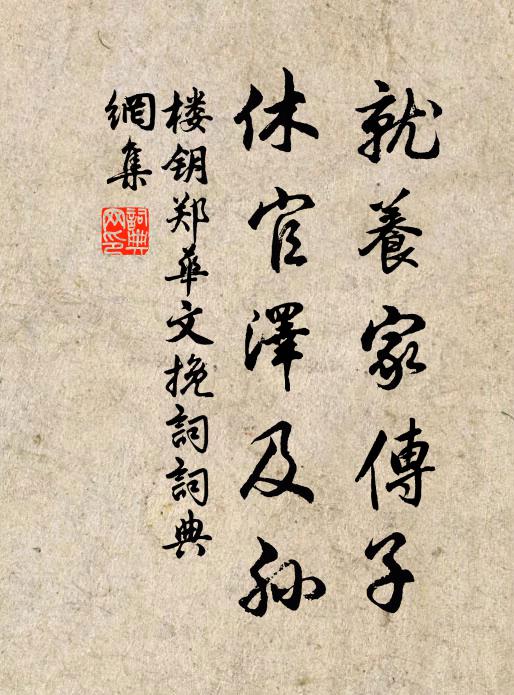 就養家傳子
休官澤及孙
楼钥郑華文挽詞詞典
網集
詞典
网印